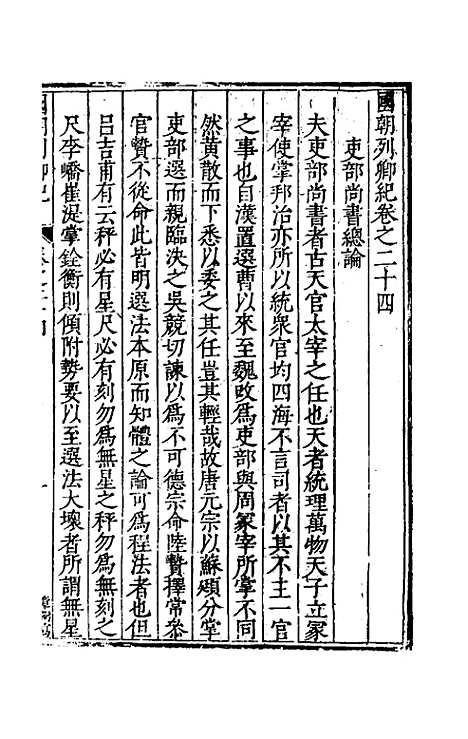 國朝列卿紀卷之二十四
吏部尚書總論
夫吏部尚書者古天官太宰之任也天者統理萬物天子立冢
宰使掌邦治亦所以統衆官均四海不言司者以其不主一官
之事也自漢置選曹以來至魏改爲吏部與周冢宰所掌不同
然黃散而下悉以委之其任豈其輕哉故唐元宗以蘇頲分掌
吏部選而親臨決之吳競切諫以爲不可德宗命陸贄擇常叅
官贄不從命此皆明選法本原而知體之論可爲程法者也但
呂吉甫有云秤必有星尺必有刻勿爲無星之秤勿爲無刻之
尺李嶠崔湜掌銓衡則傾附勢要以至選法大壞者所謂無星
國朝列卿紀
卷之二十四
一